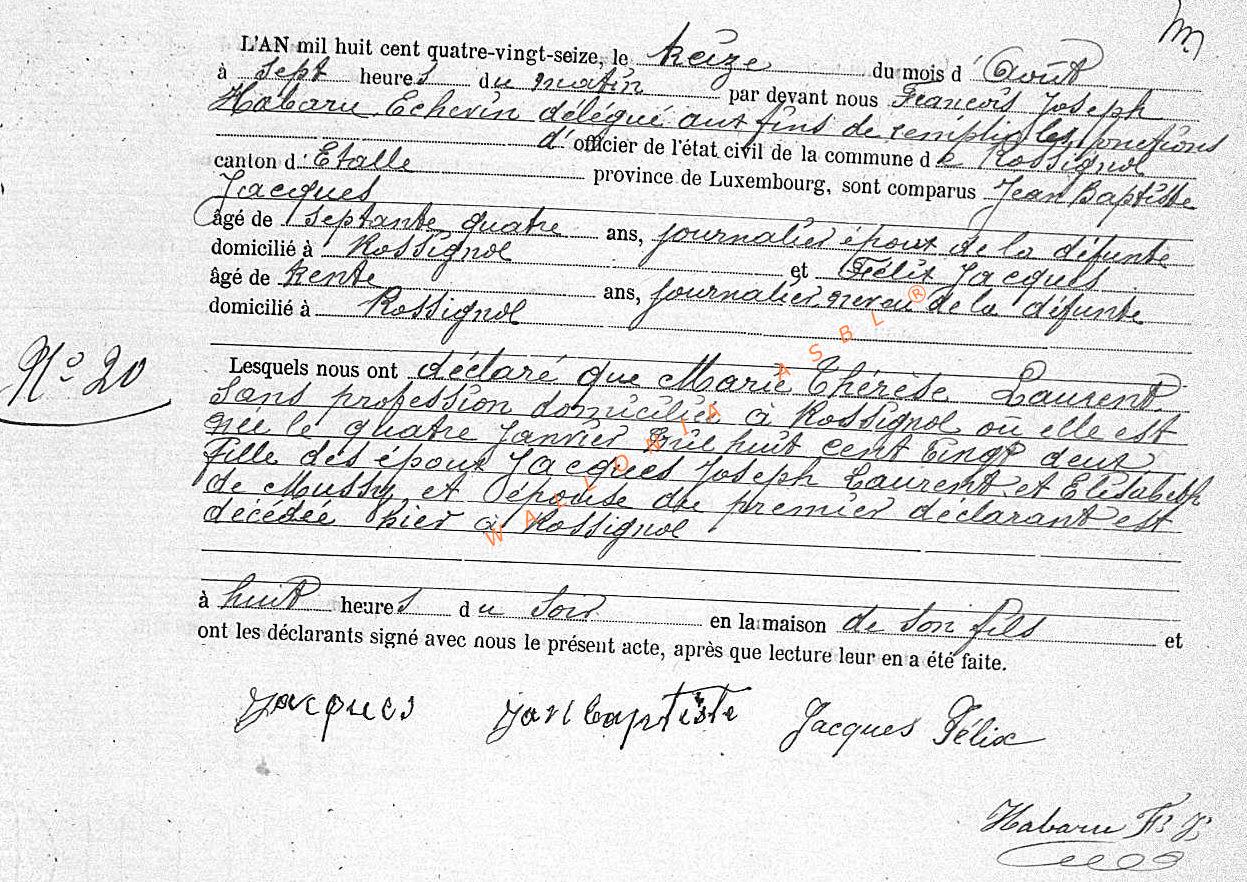 L'AN mil huit cent quatre-vingt-seize, le treize du mois d'Août
à sept heures du matin par devant nous François Joseph
Habaru Echevin délégué aux fins de remplir les fonctions
d'officier de l'état civil de la commune de Rossignol
canton d'Etalle province de Luxembourg, sont comparus Jean Baptiste
Jacques
âgé de septante quatre ans, journalier époux de la défunte
domicilié à Rossignol et Félix Jacques
âgé de trente ans, journalier neveu de la défunte
domicilié à Rossignol
N° 20
Lesquels nous ont déclaré que Marie Thérèse Laurent
sans profession domiciliée à Rossignol où elle est
née le quatre Janvier mil huit cent vingt deux
fille des époux Jacques Joseph Laurent et Elisabeth
de Mussy et épouse du premier déclarant est
décédée hier à Rossignol
à huit heures du soir en la maison de son fils et
ont les déclarants signé avec nous le présent acte, après que lecture leur en a été faite.
Jacques Jan baptiste Jacques Félix
Habaru F. J.
WALLONIA ASBL ®